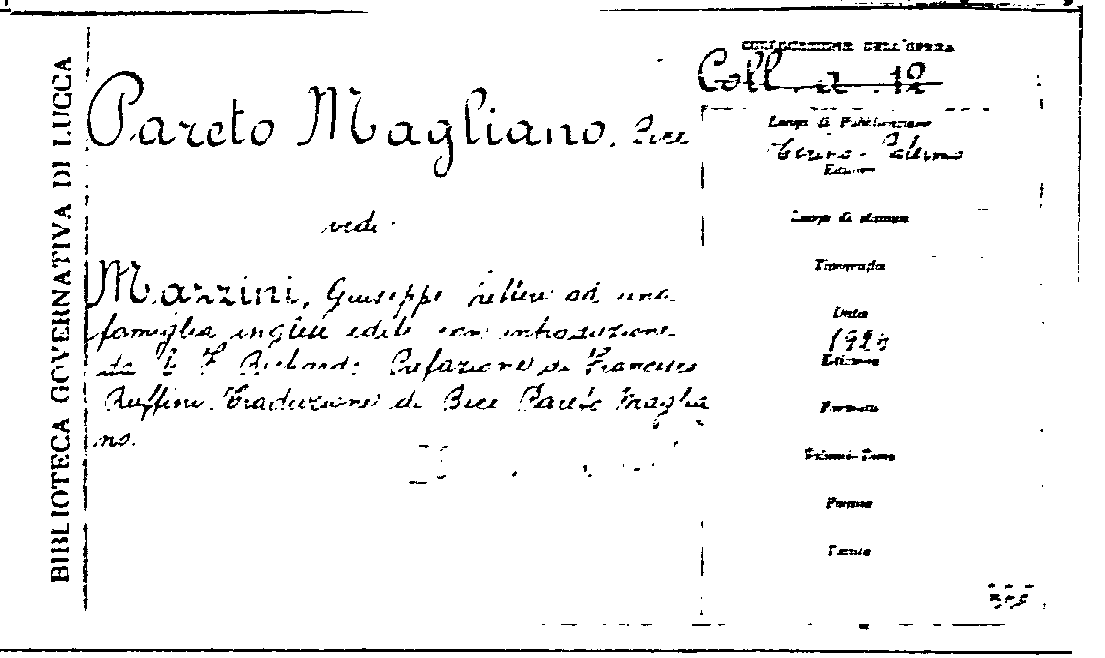 BIBLIOTECA GOVERNATIVA DI LUCCA
Pareto Magliano, Bice
vedi
Mazzini, Giuseppe Lettere ad una
famiglia inglese edite con introduzione
da E F Richards Prefazione di Francesco
Ruffini Traduzione di Bice Pareto Maglia
no.
COLLOCAZIONE DELL'OPERA
Coll. a. 12
Luogo di Pubblicazione
Torino - Palermo
Editore
Luogo di stampa
Tipografia
Data
Edizione
Formato
Volumi-Tomo